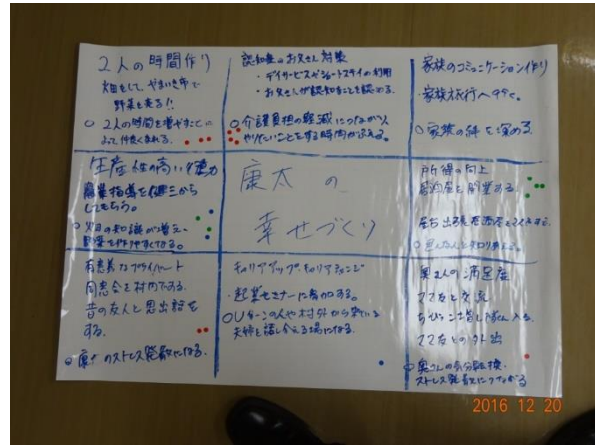 2人の時間作り
畑をして、やまいき市で
野菜を売る!!
○ 2人の時間を増やすことに
よって仲良くなれる。
認知症のお父さん対策
・デイサービスやショートステイの利用
・お父さんが認知することを認める。
○介護負担の軽減につながり
やりたいことをする時間がふえる。
家族のコミュニケーション作り
・家族旅行へ行く。
○ 家族の絆を深める
生産性の高い労力
農業指導を健三から
してもらう。
○ 畑の知識が増え、
野菜を作りやすくなる。
康太の
幸せづくり
所得の向上
居酒屋を副業する。
有意義なプライベート
同窓会を村内でする。
昔の友人と思出話を
する。
○ 康太のストレス発散になる。
キャリアアップ、キャリアチェンジ
・起業セミナーに参加する。
○Uターンの人や村外から来ている
夫婦と話し合える場になる。
奥さんの満足度
ママ友と交流
ママ友との外出
○奥さんの気分転換・
ストレス発散につながる
2016 12 20